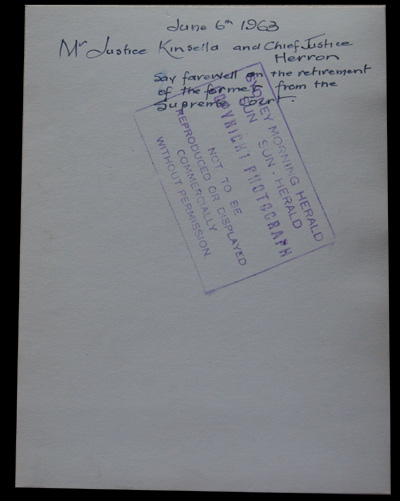 June 6th 1963
Mr Justice Kinsella and Chief Justice
Herron
Say farewell on the retirement
of the former from the
Supreme Court.
SYDNEY MORNING HERALD
SUN SUN-HERALD
COPYRIGHT PHOTOGRAPH
NOT TO BE
REPRODUCED OR DISPLAYED
COMMERCIALLY
WITHOUT PERMISSION